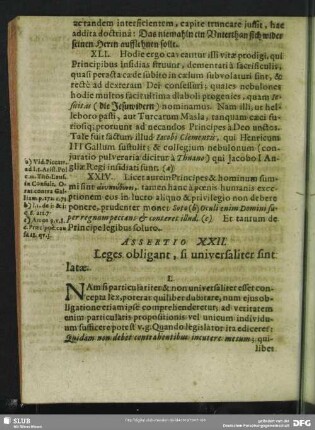 ac tandem interficientem, capite truncare jussit, hac
addita doctrina: Das niemahln ein Unterthan sich wider
seinen Herrn aufflehnen sollt.
XLI. Hodie ergo caveantur isti vitæ prodigi, qui
Principibus insidias struunt, dementati à sacrificulis,
quasi peracta cæde subitò in cælum subvolaturi sint, &
rectà ad dexteram Dei consessuri; quales nebulones
hodie multos fœcitissima diaboli progenies, quam Je-
suitas (die Jesuwidern) nominamus. Nam illi, ut hel-
leboro pasti, aut Turcarum Masla, tanquam cæci fu-
riosiq; proruunt ad necandos Principes à Deo unctos.
Tale fuit factum illud Jacobi Clementis, qui Henricum
III Gallum sustulit; & collegium nebulonum (con-
juratio pulveraria dicitur à Thuano) qui Jacobo I An-
gliæ Regi insidiati sunt. (a)
XXIV. Licet autem Principes & hominum sum-
mi sint ἀνυπεύθυνοι, tamen hanc à pœnis humanis exce-
ptionem eos in lucro aliquo & privilegio non debere
ponere, prudenter monet Soto (b) Oculi enim Domini su-
per regnum peccans & conteret illud. (c) Et tantum de
Principe legibus soluto.
a) Vid. Piccart.
ad l. 2. Arist. Pol
c. 11. Tob. Crusi.
b)
c) Amos 9. v. 8.
ASSERTIO XXII.
Leges obligant, si universaliter sint
latæ.
I.
NAm si particulariter & non universaliter esset con-
cepta lex, poterat quilibet dubitare, num ejus ob-
ligatione etiam ipse comprehenderetur; ad veritatem
enim particularis propositionis vel unicum individu-
um sufficere potest v.g. Quando legislator ita ediceret:
Quidam non debet contrahentibus incutere metum; qui-
libet
SLUB
Wir führen Wissen.
http://digital.slub-dresden.de/
gefördert von der
Deutschen Forschungsgemeinschaft